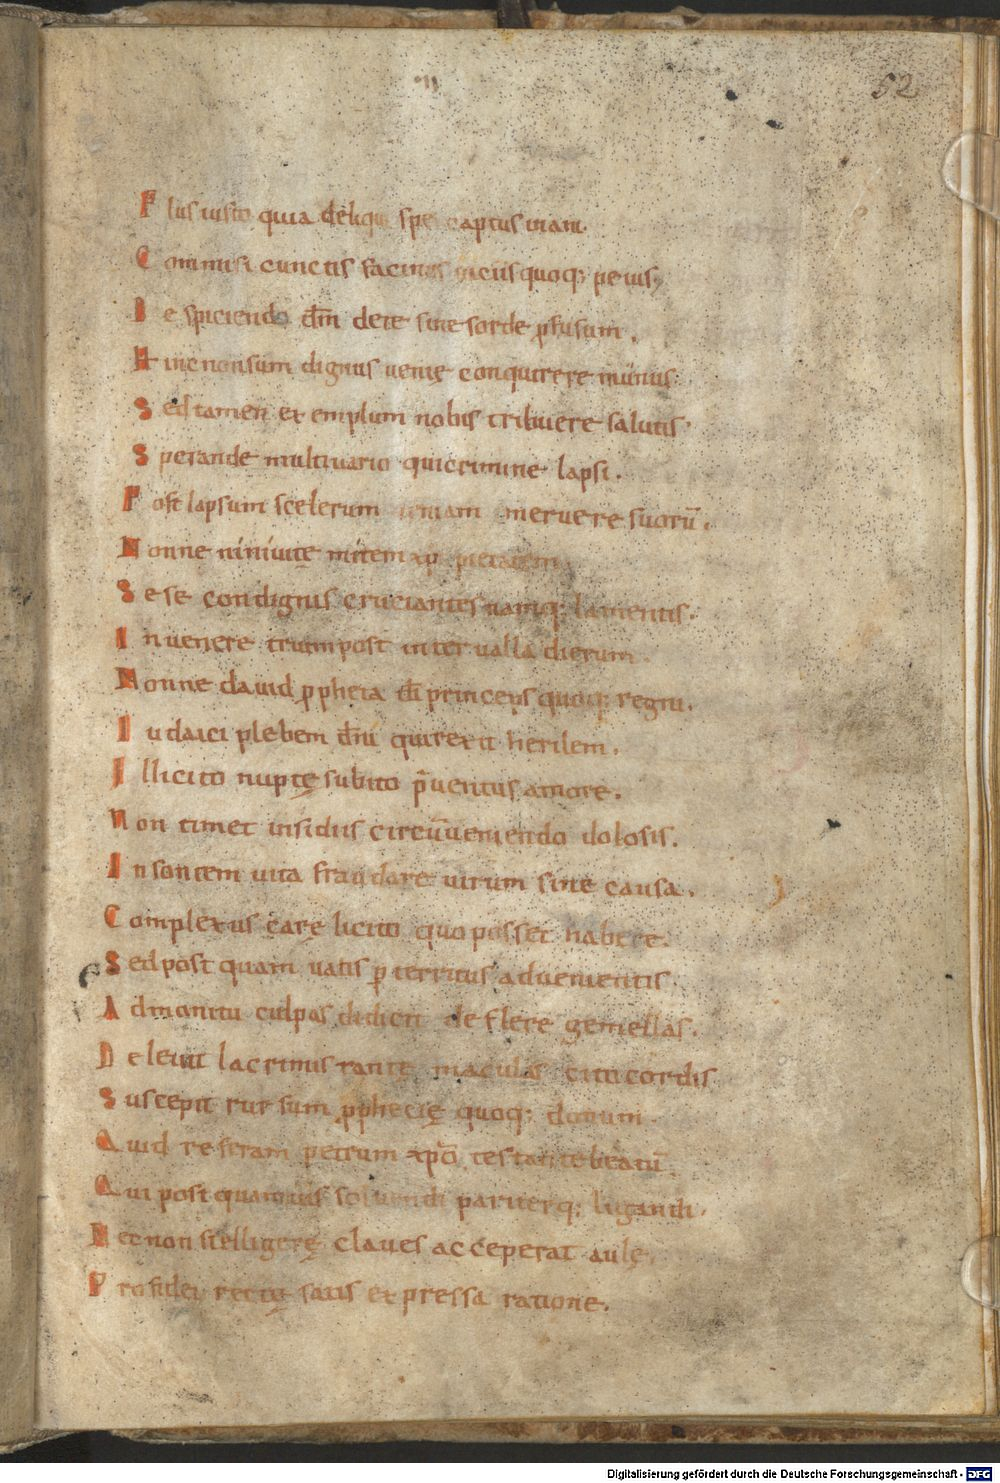 52
Plus iusto quia deliqui spe captus inani.
Commisi cunctis facinus quoq; peius;
Despiciendo dm̄ de te sine sorde p̱fusum.
Hinc non sum dignus uenię conquirere munus.
Sed tamen exemplum nobis tribuere salutis.
Sperandę multi uario qui crimine lapsi.
Post lapsum scelerum ueniam meruere suorū.
Nonne niniuitę mitem xp̄i pietatem.
Sese condignis cruciantes namq; lamentis.
Inuenere trium post interualla dierum.
Nonne dauid p̱pheta dī princeps quoq; regni.
Iudaici plebem dn̄i qui rexit herilem.
Illicito nuptę subito p̄uentus amore.
Non timet insidiis circūueniendo dolosis.
Insontem uita fraudare uirum sine causa.
Complexus carę licito quo posset habere.
Sed postquam uatis p̱territus aduenientis.
Admonitu culpas didicit deflere gemellas.
Deleuit lacrimis tantę maculas cito cordis
Suscepit rursum p̱phecię quoq; donum.
Quid referam petrum xp̄o testante beatū.
Qui postquam ius soluendi pariterq; ligandi.
Necnon stelligerę claues acceperat aulę.
Pro fidei rectę satis expressa ratione.
Digitalisierung gefördert durch die Deutsche Forschungsgemeinschaft - DFG